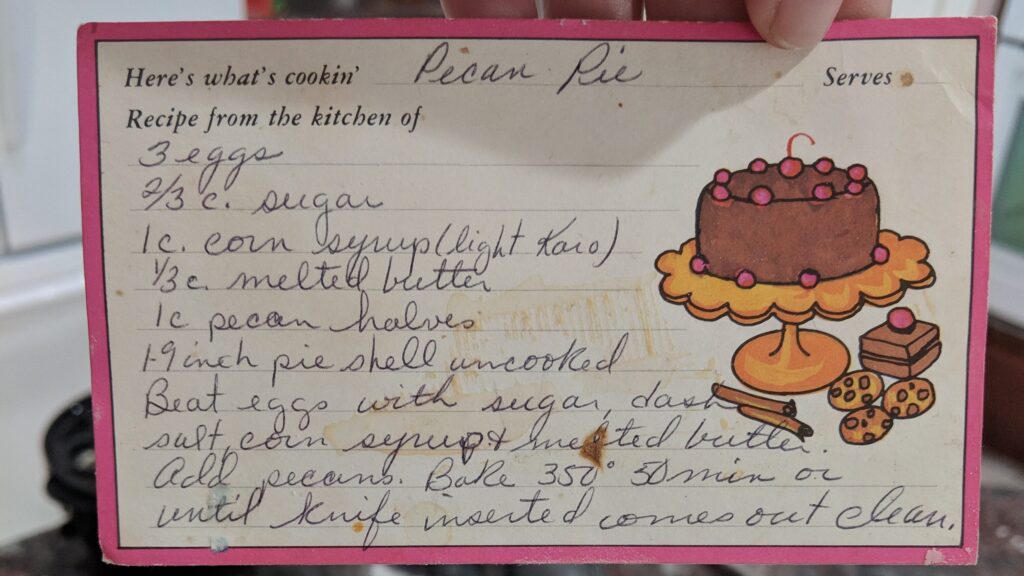 Here's what's cookin' Pecan Pie Serves
Recipe from the kitchen of
3 eggs
2/3 c. sugar
1c. corn syrup (light Karo)
1/3 c. melted butter
1c pecan halves
1-9 inch pie shell uncooked
Beat eggs with sugar, dash
salt, corn syrup & melted butter.
Add pecans. Bake 350° 50 min or
until knife inserted comes out clean.